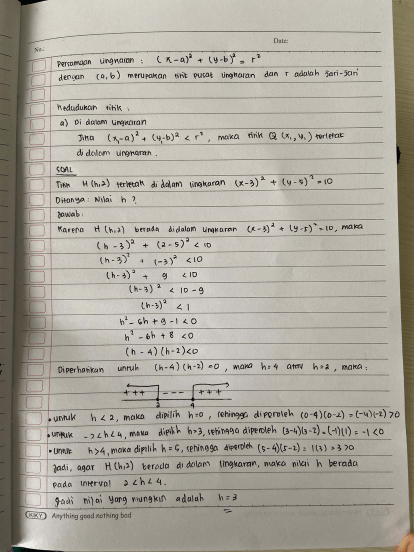 No.:
Date:
Persamaan lingkaran : (x-a)² + (y-b)² = r²
dengan (a,b) merupakan titik pusat lingkaran dan r adalah jari-jari
Kedudukan titik :
a) Di dalam lingkaran
Jika (x₁-a)² + (y₁-b)² < r², maka titik Q (x₁, y₁) terletak
di dalam lingkaran.
SOAL
Titik H (h,2) terletak di dalam lingkaran (x-3)² + (y-5)² = 10
Ditanya : Nilai h ?
Jawab :
Karena H (h,2) berada didalam lingkaran (x-3)² + (y-5)² = 10, maka
(h-3)² + (2-5)² < 10
(h-3)² + (-3)² < 10
(h-3)² + 9 < 10
(h-3)² < 10 - 9
(h-3)² < 1
h² - 6h + 9 - 1 < 0
h² - 6h + 8 < 0
(h-4)(h-2) < 0
Diperhatikan untuk (h-4)(h-2) = 0, maka h=4 atau h=2, maka :
+++ --- +++
• untuk h < 2, maka dipilih h=0, sehingga diperoleh (0-4)(0-2) = (-4)(-2) > 0
• untuk 2 < h < 4, maka dipilih h=3, sehingga diperoleh (3-4)(3-2) = (-1)(1) = -1 < 0
• untuk h > 4, maka dipilih h=5, sehingga diperoleh (5-4)(5-2) = 1(3) = 3 > 0
Jadi, agar H (h,2) berada di dalam lingkaran, maka nilai h berada
pada interval 2 < h < 4.
Jadi nilai yang mungkin adalah h = 3
KIKY Anything good nothing bad